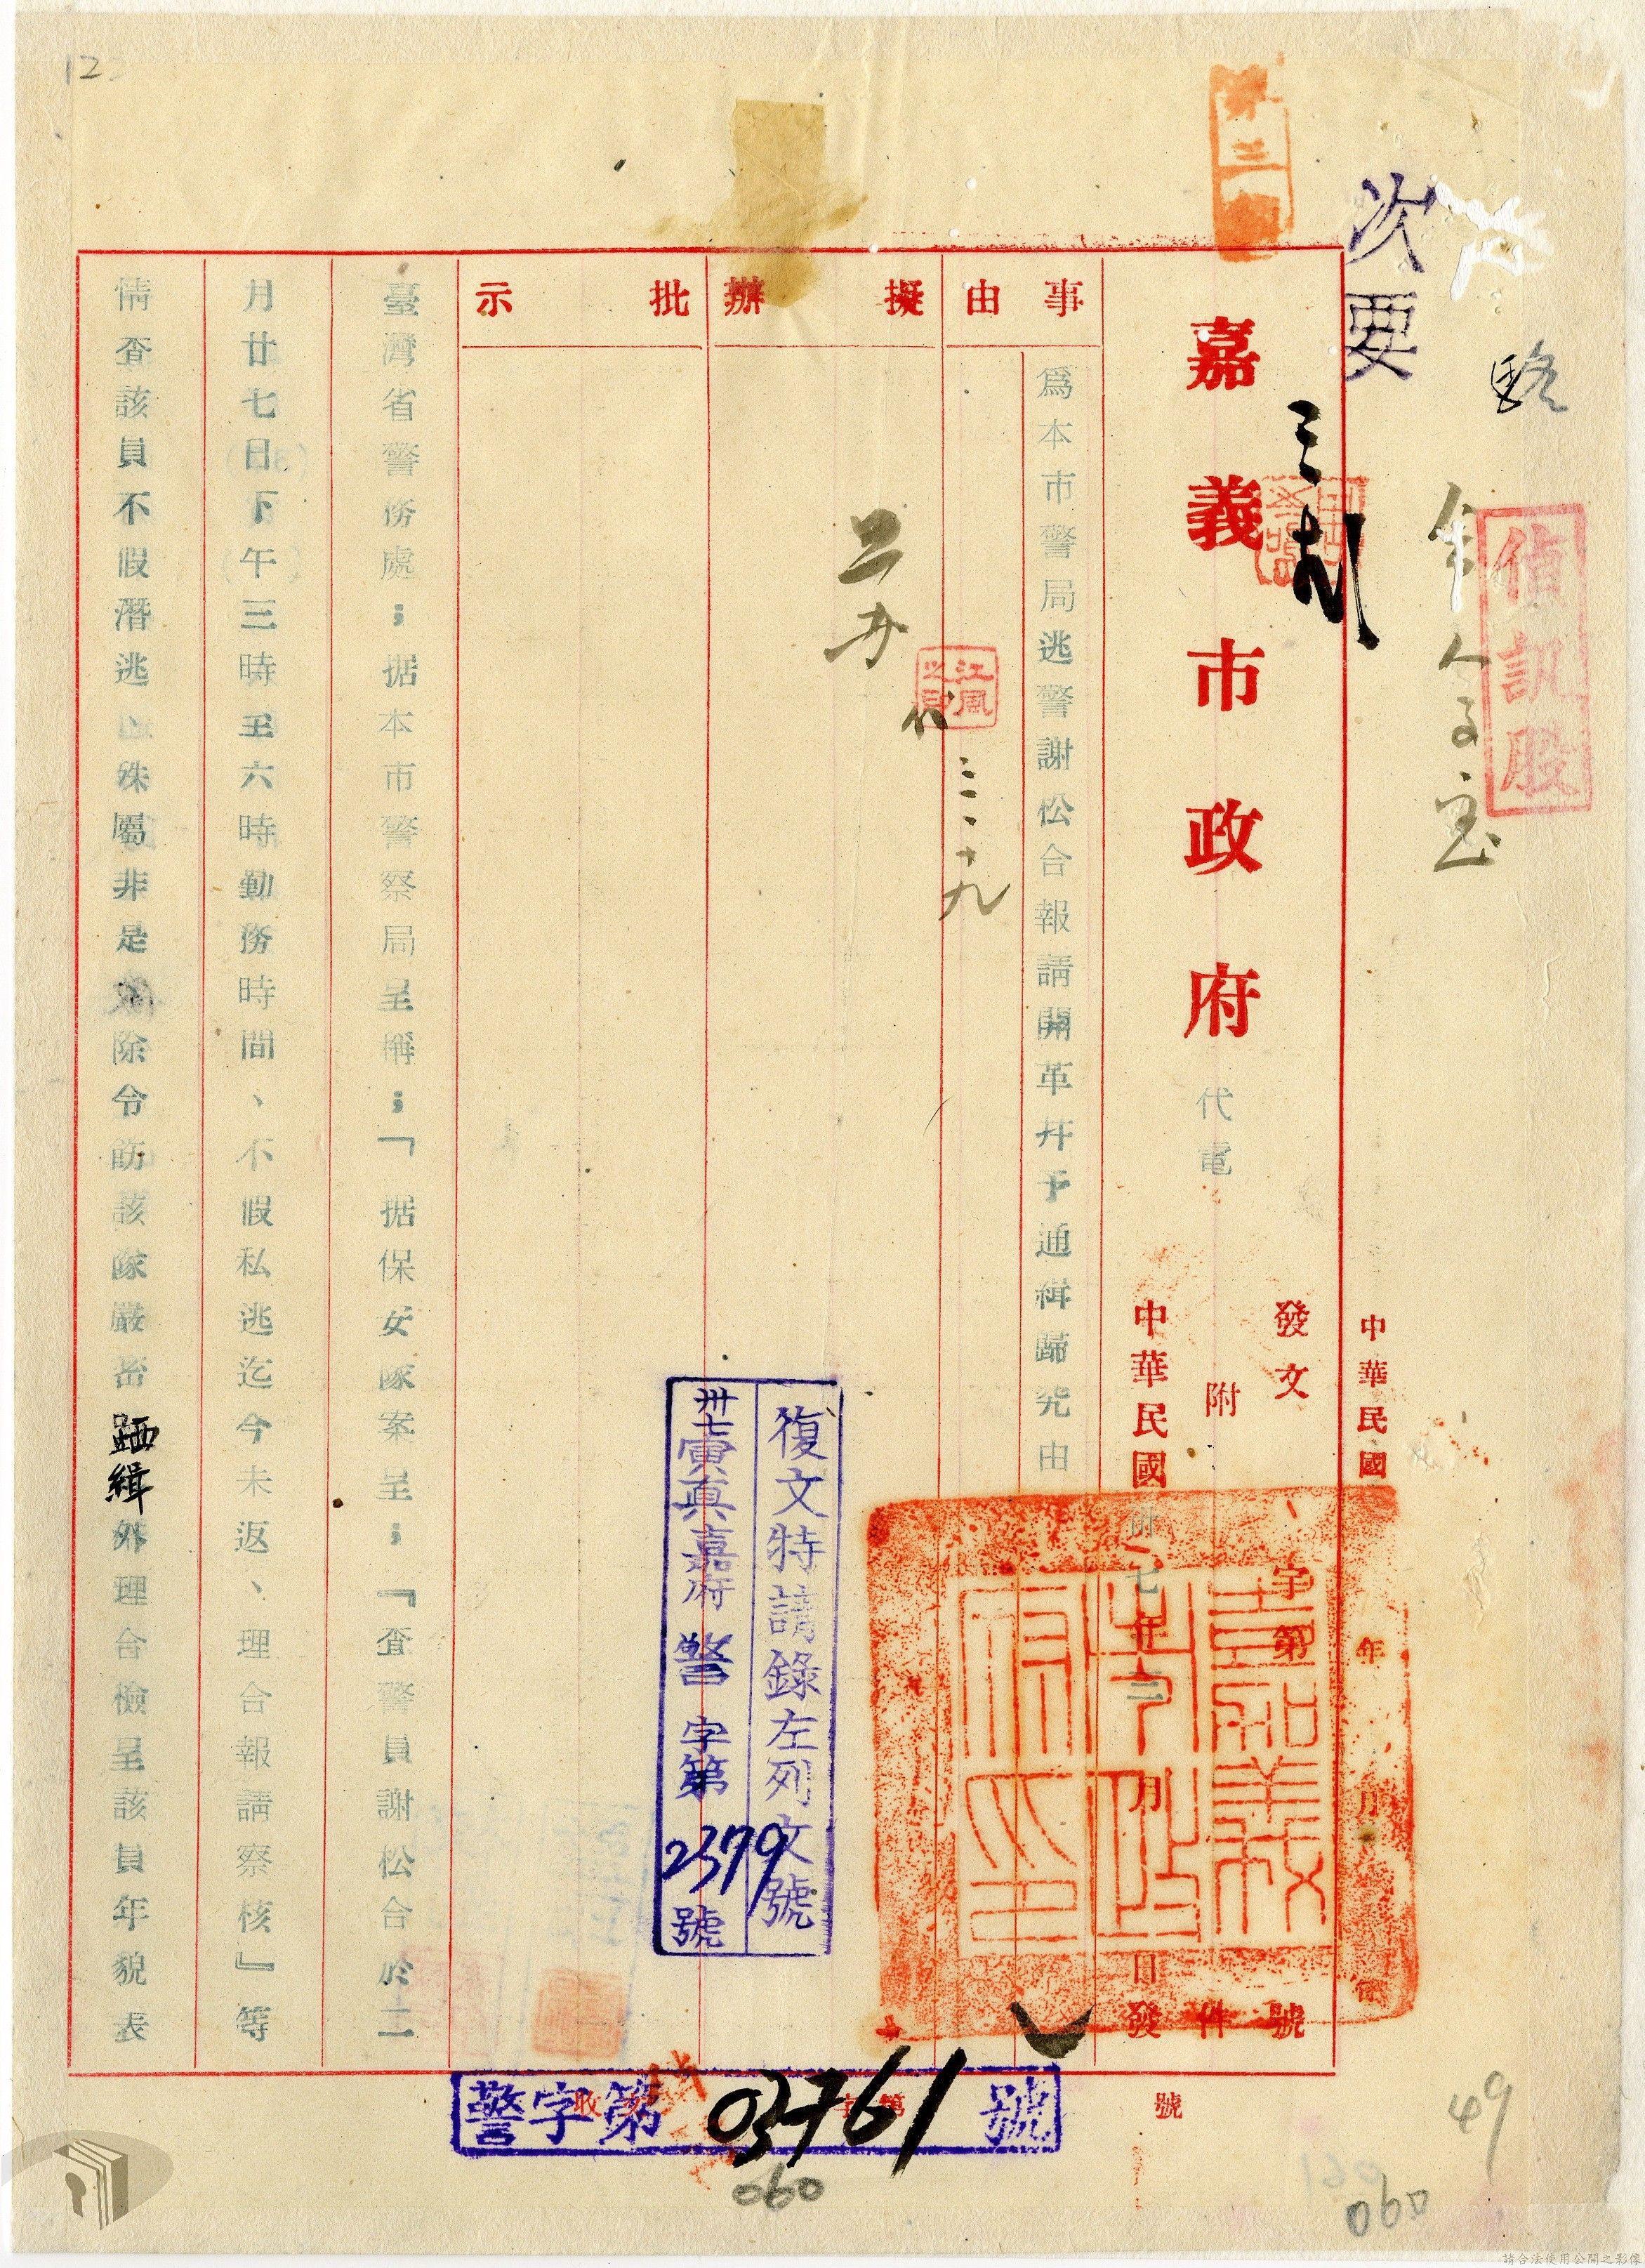 次要
偵訊股
中華民國 年 月
嘉義市政府 代電
發文 字第 號
附 件
中華民國卅七年三月 日發
事由
為本市警局逃警謝松合報請開革幷予通緝歸究由
擬辦
三、十九
批示
復文特請錄左列文號
卅七寅真嘉府警字第2379號
臺灣省警務處；据本市警察局呈稱；「据保安隊案呈；『查警員謝松合於二
月廿七日下午三時至六時勤務時間、不假私逃迄今未返、理合報請察核』等
情查該員不假潛逃 殊屬非是 除令飭該隊嚴密跴緝外理合檢呈該員年貌表
警字第03761號
收 字第 號
060
49
060
嘉義市政府印
請合法使用公開之影像